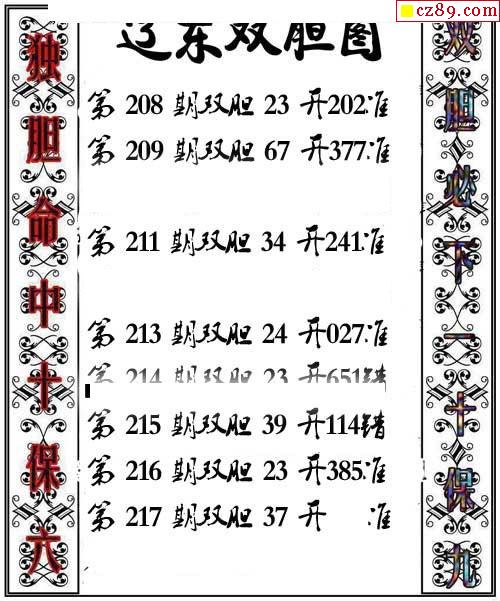 cz89.com
辽东双胆图
独胆命中十保六
第 208 期双胆 23 开202准
第 209 期双胆 67 开377准
第 211 期双胆 34 开241准
第 213 期双胆 24 开027准
第 214 期双胆 23 开651错
第 215 期双胆 39 开114错
第 216 期双胆 23 开385准
第 217 期双胆 37 开 准
双胆必下一十保九